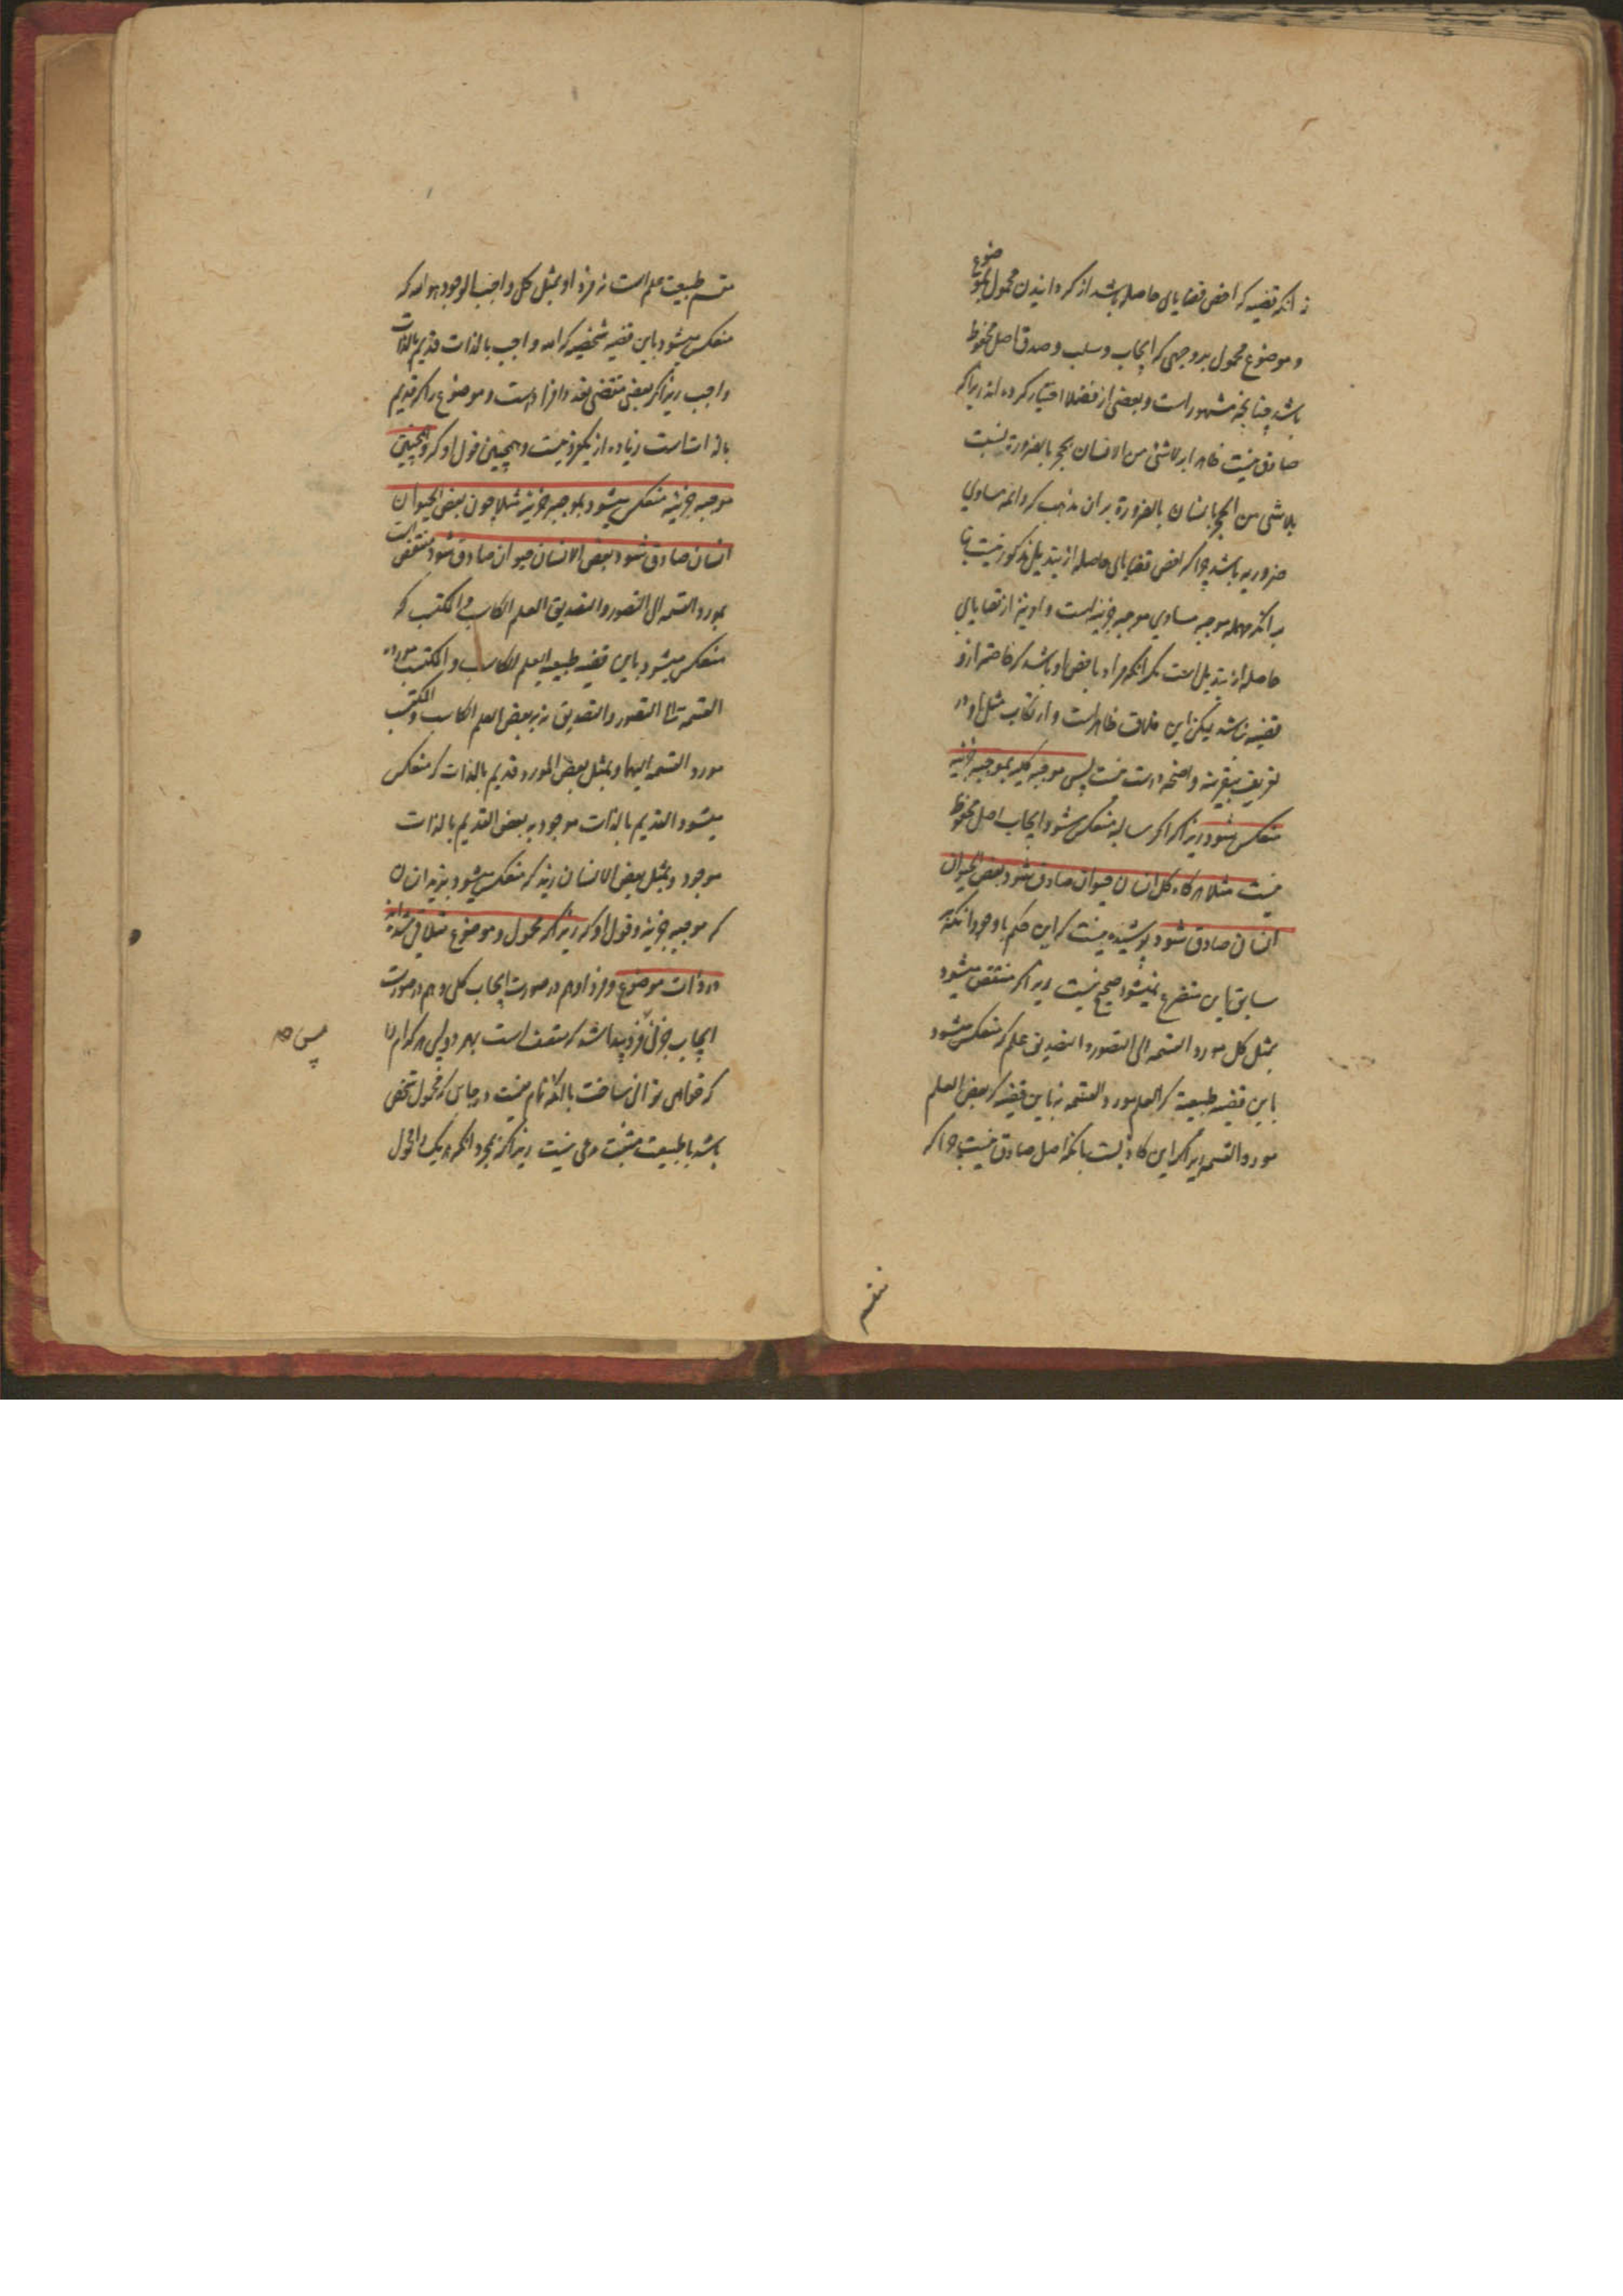 نه آنکه قضیه که اخص قضایای حاصله باشد از گردانیدن محمول بموضوع
و موضوع محمول بر وجهی که ایجاب و سلب و صدق اصل محفوظ
باشد چنانچه مشهور است و بعضی از فضلا اختیار کرده اند زیراکه
صادق نیست ظاهرا بر لاشی من الانسان بحجر بالضرورة نسبت
بلاشی من الحجر بانسان بالضرورة بر آن مذهب که دائمه مساوی
ضروریه باشد چراکه اخص قضایای حاصله از تبدیل مذکور نیست
بر آنکه مهمله موجبه مساوی موجبه جزئیه است و او نیز از قضایای
حاصله از تبدیل است مگر آنکه مراد باخص او باشد که خاصتر ازو
قضیه نباشد لیکن این خلاف ظاهر است و ارتکاب مثل او در
تعریف بیقرینه واضحه درست نیست پس موجبه کلیه بموجبه جزئیه
منعکس شود زیراکه اگر سالبه منعکس شود ایجاب اصل محفوظ
نیست مثلا هرگاه کل انسان حیوان صادق شود بعض الحیوان
انسان صادق شود پوشیده نیست که این حکم با وجود آنکه بر
سابق این متفرع نمیشود صحیح نیست زیراکه منتقض میشود
بمثل کل مورد القسمه الی التصور و التصدیق علم که منعکس میشود
باین قضیه طبیعیة که العلم مورد القسمه نه باین قضیه که بعض العلم
مورد القسمه زیراکه این کاذبست بانکه اصل صادق نیست چراکه
مقسم
مقسم طبیعت علم است نه فرد او بمثل کل واجب الوجود هو الله که
منعکس میشود باین قضیه شخصیه که الله واجب بالذات قدیم بالذات
واجب زیراکه بعض مقتضی تعدد افراد است و موضوع را که قدیم
بالذات است زیاده از یکفرد نیست و همچنین قول او که و همچنین
موجبه جزئیه منعکس میشود بموجبه جزئیه مثلا چون بعض الحیوان
انسان صادق شود بعض الانسان حیوان صادق شود منتقض است
بمورد القسمه الی التصور و التصدیق العلم الکاسب و المکتسب که
منعکس میشود باین قضیه طبیعیه العلم الکاسب و المکتسب مورد
القسمة الی التصور و التصدیق نه ببعض العلم الکاسب و المکتسب
مورد القسمه الیهما و بمثل بعض المورد قدیم بالذات که منعکس
میشود القدیم بالذات موجود به بعض القدیم بالذات
موجود و بمثل بعض الانسان زید که منعکس میشود بزید انسان
که موجبه جزئیه و قول او که زیراکه محمول و موضوع متلاقی شده اند
در ذات موضوع و فرد او هم در صورت ایجاب کلی و هم در صورت
ایجاب جزئی فرد پیدا شد که متصف است بهر دو پس هر کدام را
پس هر
که خواهی توان ساخت بالکه تام نیست در جایی که محمول شخصی
باشد یا طبیعت مثبت مدعی نیست زیراکه بمجرد آنکه هر یک از محمول